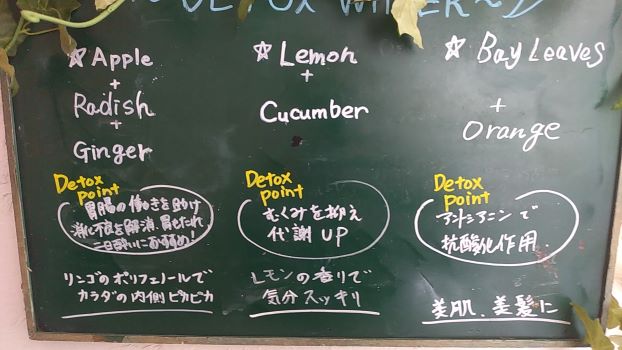 ~DETOX WATER~
☆Apple
+
Radish
+
Ginger
Detox
point
胃腸の働きを助け
消化不良を解消、胃もたれ
二日酔いにおすすめ!
リンゴのポリフェノールで
カラダの内側ピカピカ
☆Lemon
+
Cucumber
Detox
point
むくみを抑え
代謝UP
レモンの香りで
気分スッキリ
☆Bay Leaves
+
Orange
Detox
point
アントシアニンで
抗酸化作用
美肌、美髪に